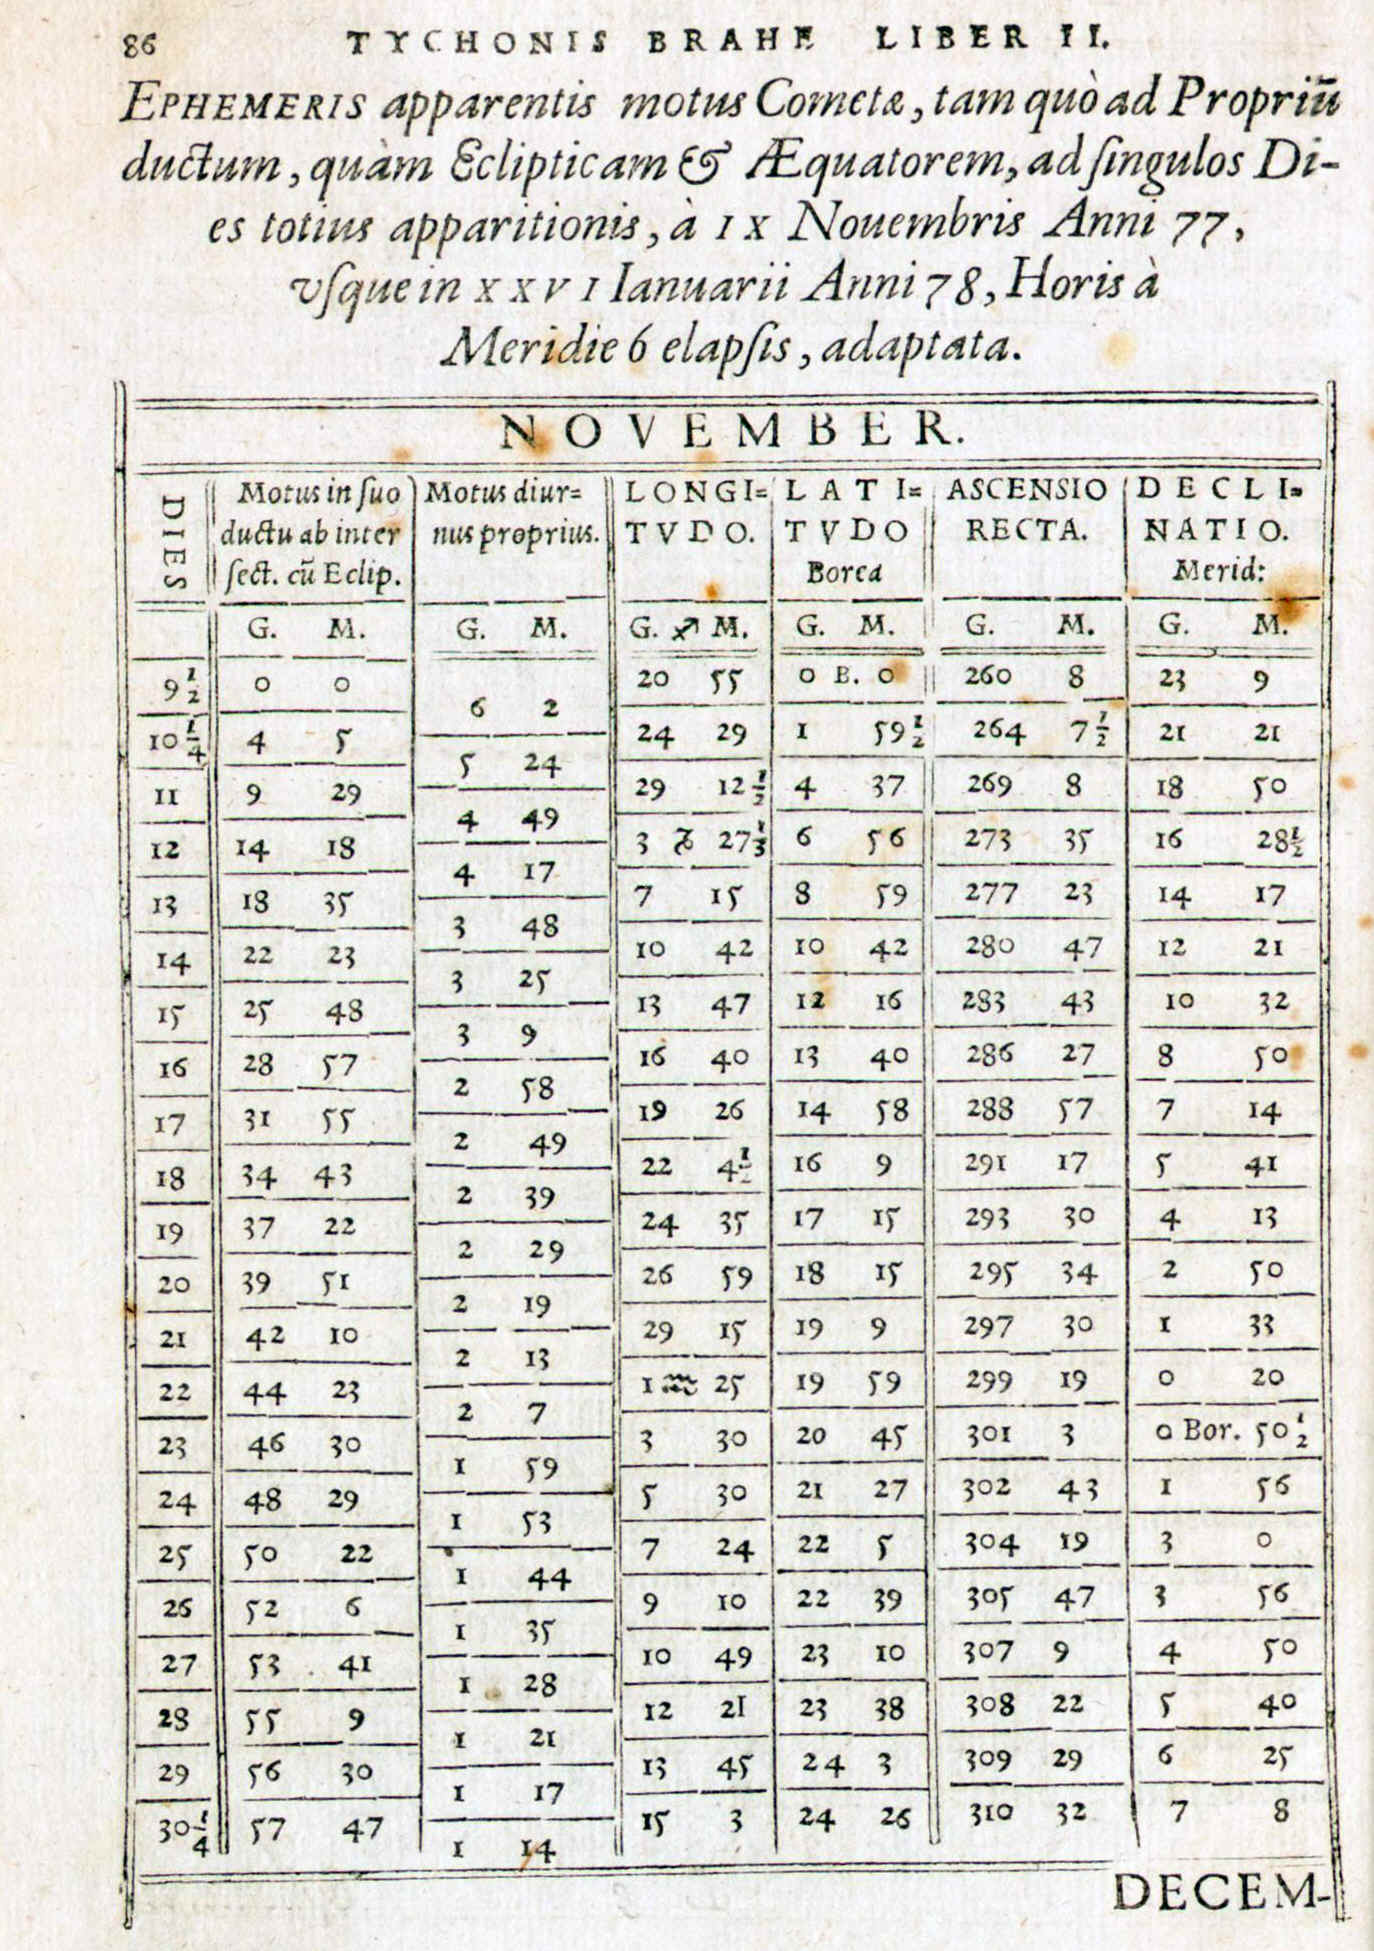 86 TYCHONIS BRAHE LIBER II.
EPHEMERIS apparentis motus Cometæ, tam quò ad Propriū
ductum, quàm Eclipticam & Æquatorem, ad ſingulos Di-
es totius apparitionis, à IX Nouembris Anni 77,
vſque in XXVI Ianuarii Anni 78, Horis à
Meridie 6 elapſis, adaptata.
NOVEMBER.
DIES | Motus in ſuo | Motus diur= | LONGI= | LATI= | ASCENSIO | DECLI=
ductu ab inter | nus proprius. | TVDO. | TVDO | RECTA. | NATIO.
ſect. cū Eclip. | Borea | Merid:
G. M. | G. M. | G. ♐ M. | G. M. | G. M. | G. M.
9 1/2 | 0 0 | 6 2 | 20 55 | 0 B. 0 | 260 8 | 23 9
10 1/4 | 4 5 | 5 24 | 24 29 | 1 59 1/2 | 264 7 1/2 | 21 21
11 | 9 29 | 4 49 | 29 12 1/2 | 4 37 | 269 8 | 18 50
12 | 14 18 | 4 17 | 3 ♑ 27 1/3 | 6 56 | 273 35 | 16 28 1/2
13 | 18 35 | 3 48 | 7 15 | 8 59 | 277 23 | 14 17
14 | 22 23 | 3 25 | 10 42 | 10 42 | 280 47 | 12 21
15 | 25 48 | 3 9 | 13 47 | 12 16 | 283 43 | 10 32
16 | 28 57 | 2 58 | 16 40 | 13 40 | 286 27 | 8 50
17 | 31 55 | 2 49 | 19 26 | 14 58 | 288 57 | 7 14
18 | 34 43 | 2 39 | 22 4 1/2 | 16 9 | 291 17 | 5 41
19 | 37 22 | 2 29 | 24 35 | 17 15 | 293 30 | 4 13
20 | 39 51 | 2 19 | 26 59 | 18 15 | 295 34 | 2 50
21 | 42 10 | 2 13 | 29 15 | 19 9 | 297 30 | 1 33
22 | 44 23 | 2 7 | 1 ♒ 25 | 19 59 | 299 19 | 0 20
23 | 46 30 | 1 59 | 3 30 | 20 45 | 301 3 | 0 Bor. 50 1/2
24 | 48 29 | 1 53 | 5 30 | 21 27 | 302 43 | 1 56
25 | 50 22 | 1 44 | 7 24 | 22 5 | 304 19 | 3 0
26 | 52 6 | 1 35 | 9 10 | 22 39 | 305 47 | 3 56
27 | 53 41 | 1 28 | 10 49 | 23 10 | 307 9 | 4 50
28 | 55 9 | 1 21 | 12 21 | 23 38 | 308 22 | 5 40
29 | 56 30 | 1 17 | 13 45 | 24 3 | 309 29 | 6 25
30 1/4 | 57 47 | 1 14 | 15 3 | 24 26 | 310 32 | 7 8
DECEM-